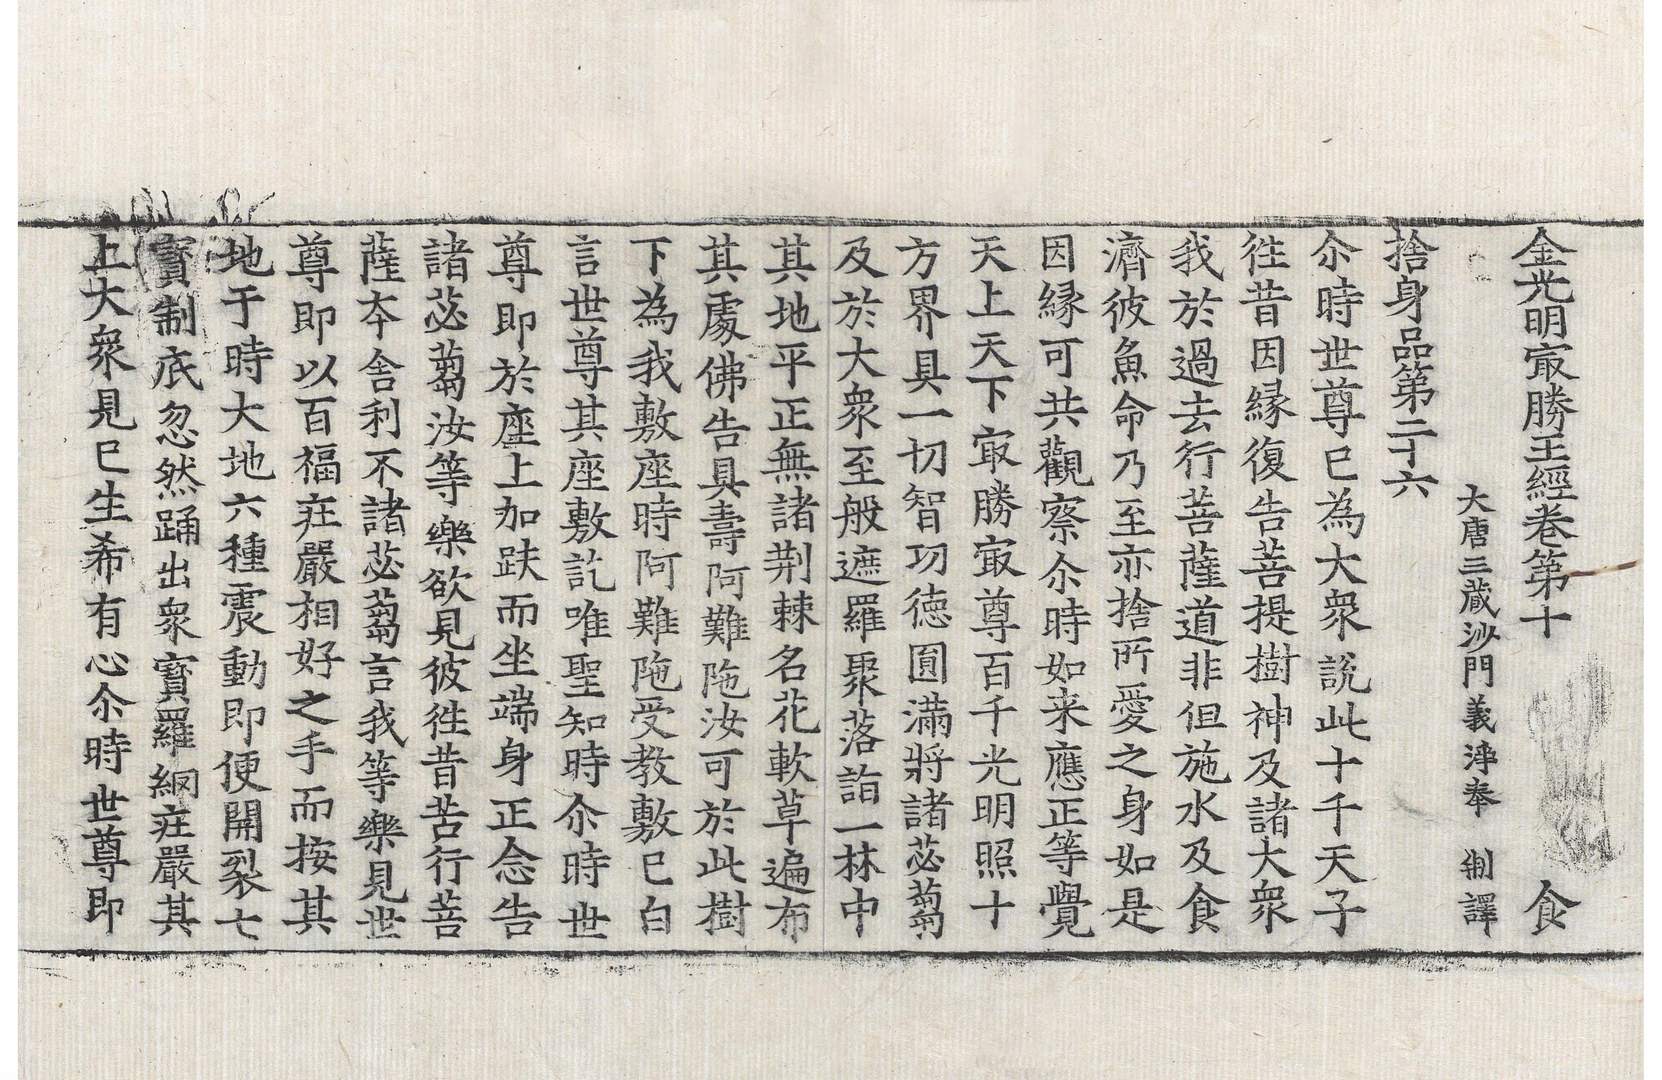 金光明㝡勝王經卷第十　食
大唐三藏沙門義淨奉　制譯
捨身品第二十六
尒時世尊已為大衆說此十千天子
徃昔因縁復告菩提樹神及諸大衆
我於過去行菩薩道非但施水及食
濟彼魚命乃至亦捨所愛之身如是
因縁可共觀察尒時如来應正等覺
天上天下㝡勝㝡尊百千光明照十
方界具一切智功徳圎滿將諸苾蒭
及於大衆至般遮羅聚落詣一林中
其地平正無諸荆棘名花軟草遍布
其處佛告具壽阿難陁汝可於此樹
下為我敷座時阿難陁受教敷已白
言世尊其座敷訖唯聖知時尒時世
尊即於座上加趺而坐端身正念告
諸苾蒭汝等樂欲見彼徃昔苦行菩
薩夲舎利不諸苾蒭言我等樂見世
尊即以百福莊嚴相好之手而按其
地于時大地六種震動即便開裂七
寳制底忽然踊出衆寳羅網莊嚴其
上大衆見已生希有心尒時世尊即